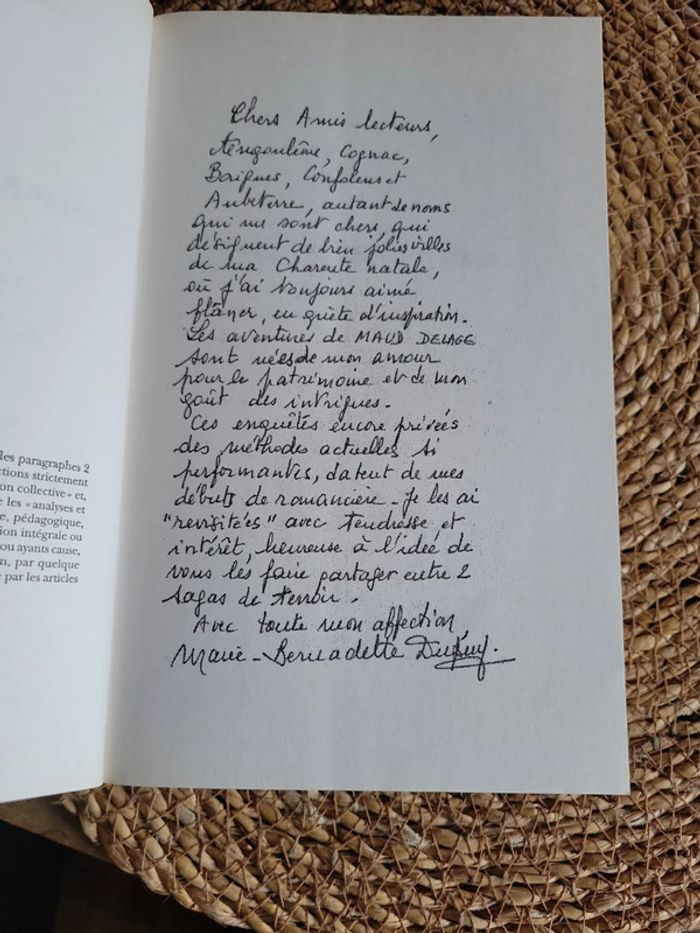 les paragraphes 2
ctions strictement
on collective » et,
e les « analyses et
e, pédagogique,
tion intégrale ou
ou ayants cause,
n, par quelque
e par les articles
Chers Amis lecteurs,
Angoulême, Cognac,
Barigues, Confolens et
Aubeterre, autant de noms
qui me sont chers, qui
désignent de bien jolies villes
de ma Charente natale,
où j'ai toujours aimé
flâner, en quête d'inspiration.
Les aventures de MAUD DELAGE
sont nées de mon amour
pour le patrimoine et de mon
goût des intrigues.
Ces enquêtes encore privées
des méthodes actuelles si
performantes, datent de mes
débuts de romancière. Je les ai
"revisitées" avec tendresse et
intérêt, heureuse à l'idée de
vous les faire partager entre 2
sagas de terroir.
Avec toute mon affection
Marie-Bernadette Dupuy.